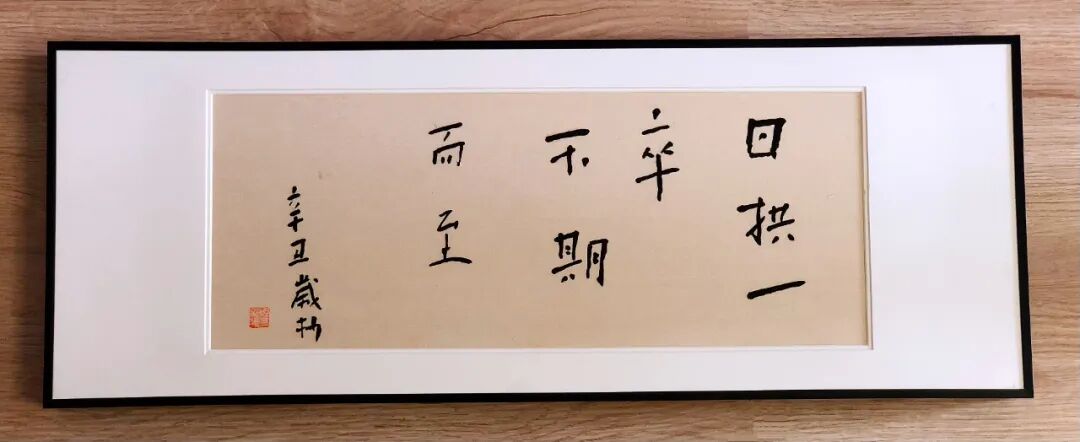 日拱一
卒
不期
而至
辛丑歲杪